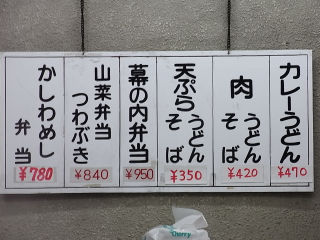 カレーうどん
¥470
肉 うどん そば
¥420
天ぷら うどん そば
¥350
幕の内弁当
¥950
山菜弁当
つわぶき
¥840
かしわめし
弁当
¥780
Cherry